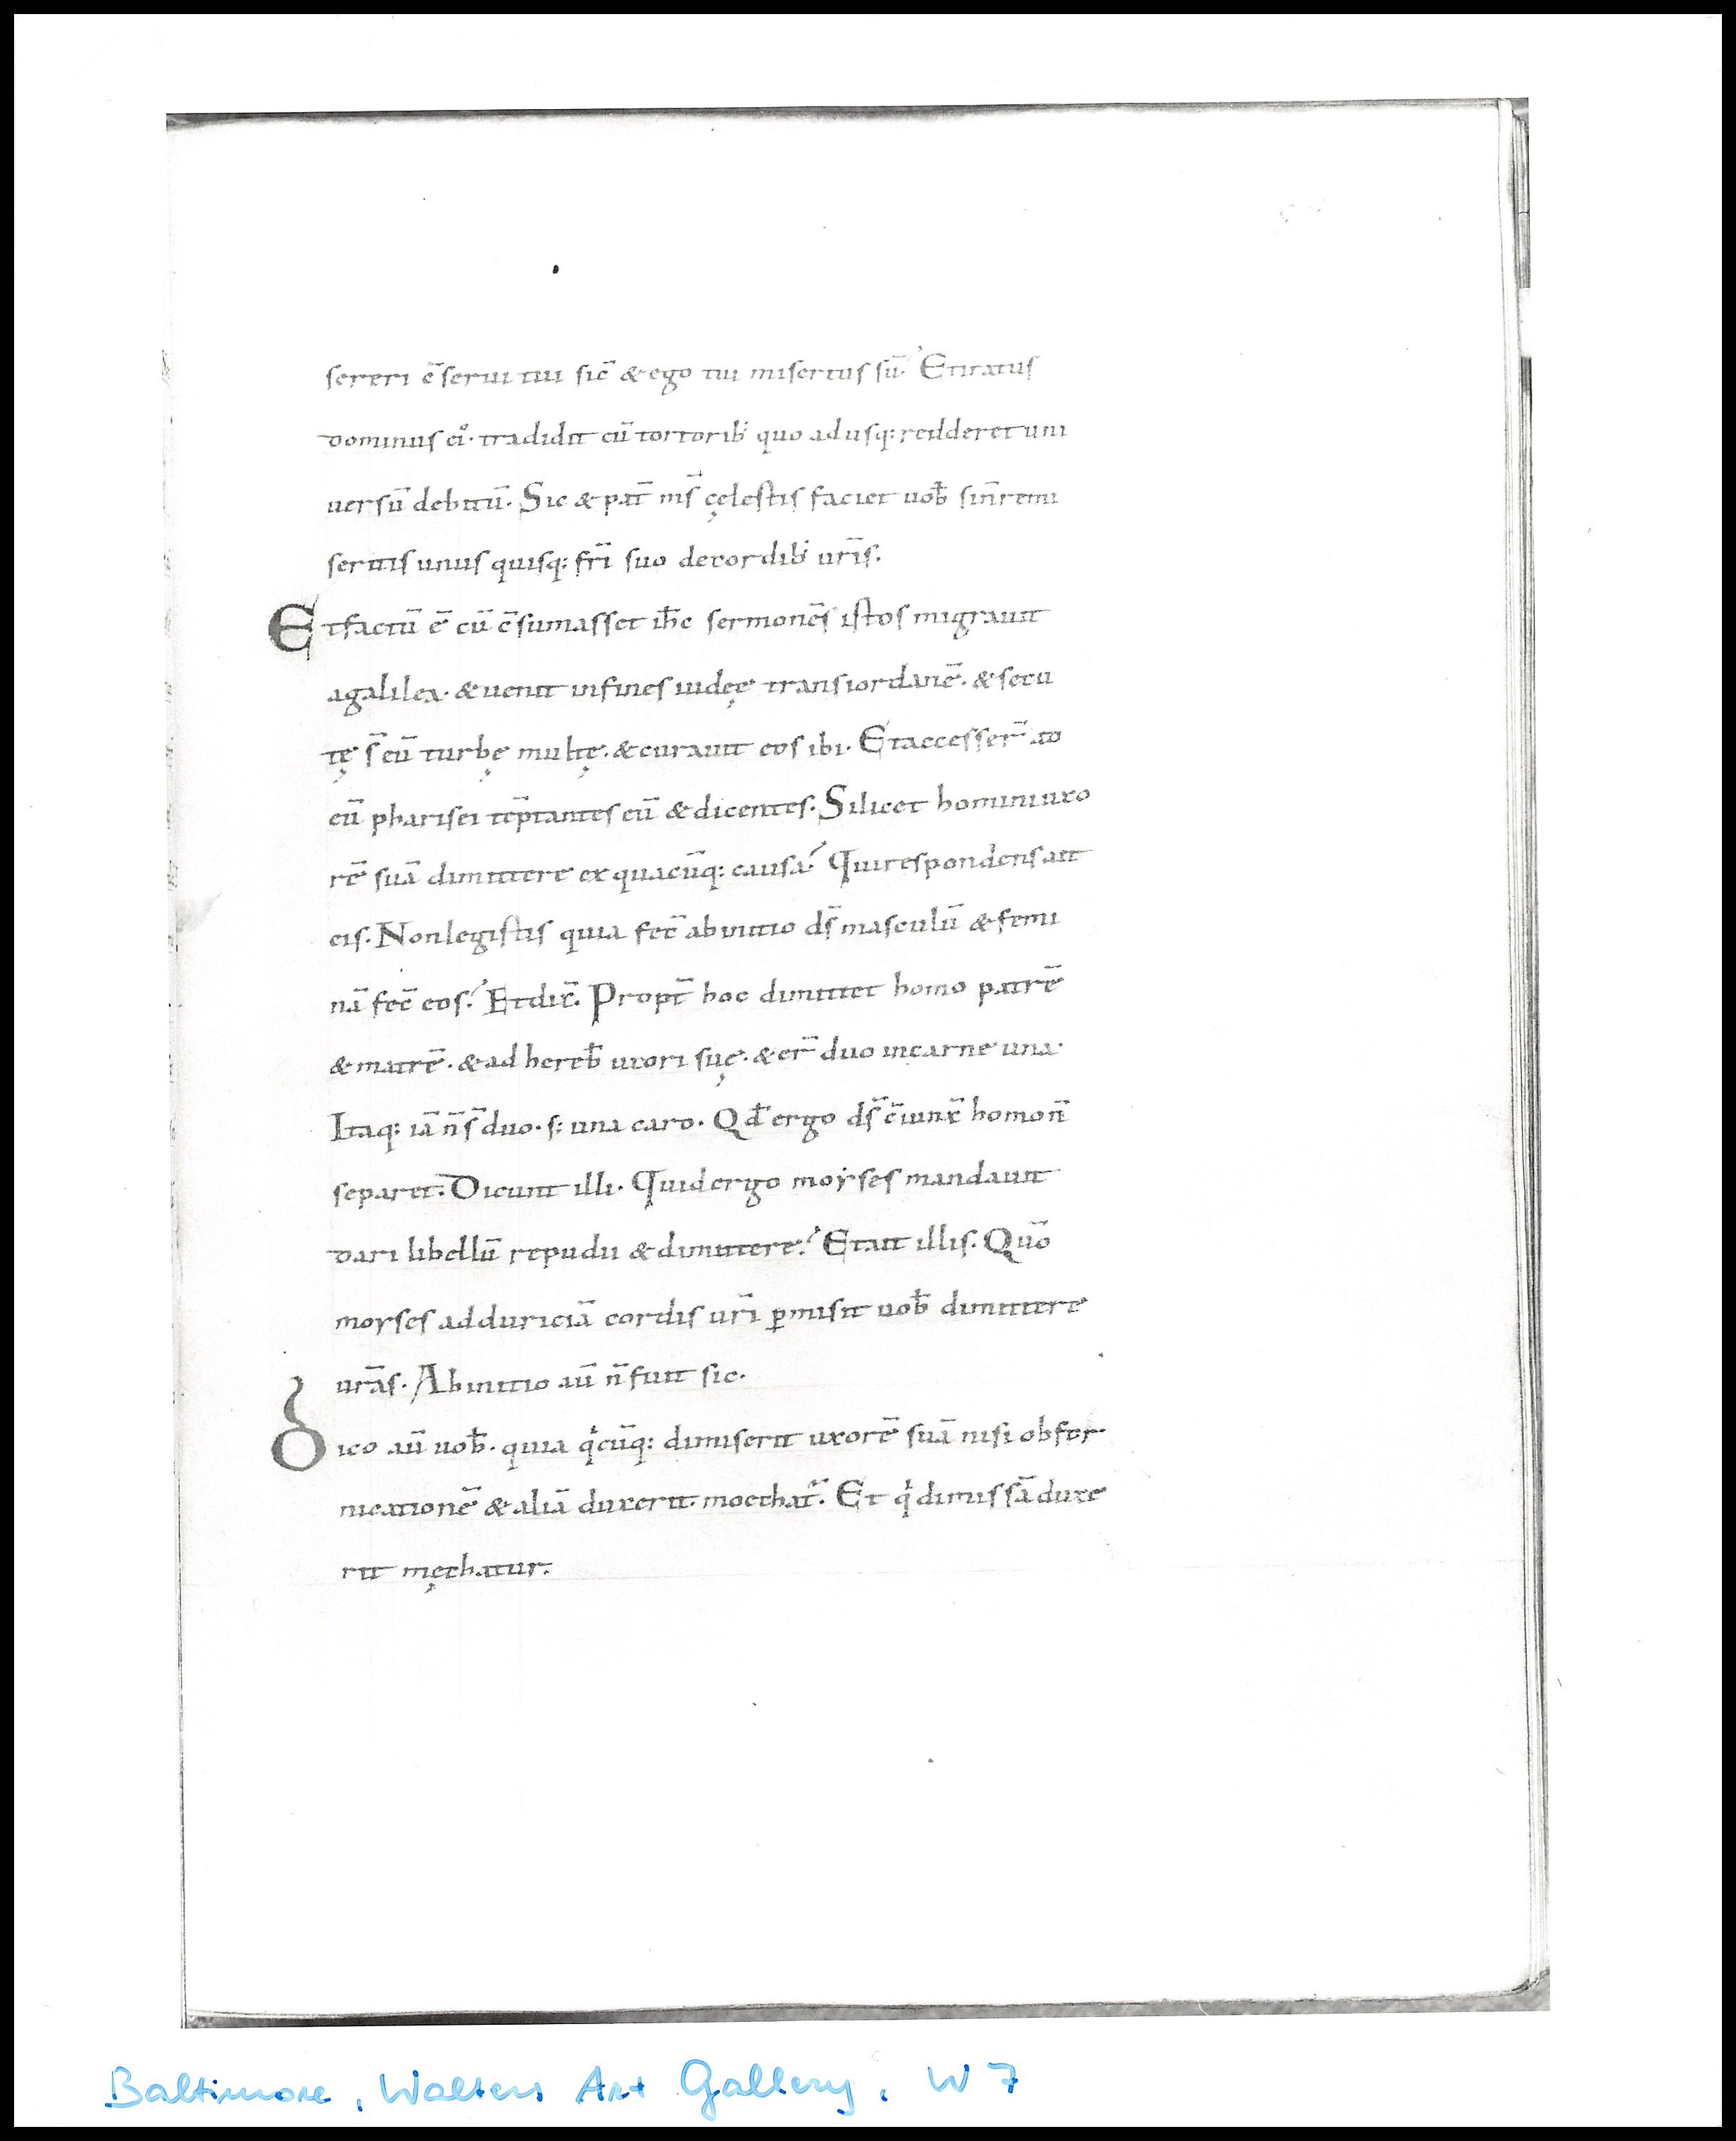 sereri ē serui tui sic̄ & ego tui misertus sū. Et iratus
dominus ei᷒· tradidit eū tortorib; quo adusq: redderet uni
uersū debitū. Sic & pat̄ ms̄ cęlestis faciet uob̄ sin̄ remi
seritis unus quisq: fr̄i suo decordib; ur̄is.
Et factū ē cū c̄sumasset ih̄c sermonēs istos migrauit
agalilea· & uenit infines iudęe transiordanē. & secu
tę s̄ eū turbę multę. & curauit eos ibi. Et accesser̄ ad
eū pharisei tēptantes eū & dicentes. Si licet homini uxo
rē suā dimittere ex quacūq: causa? Qui respondens ait
eis. Non legistis quia fec̄ ab initio ds̄ masculū & femi
nā fec̄ eos? Et dix̄. Propt̄ hoc dimittet homo patrē
& matrē. & ad hereb̄ uxori suę. & er̄ duo incarne una·
Itaq: iā n̄ s̄ duo. s: una caro. Qd̄ ergo ds̄ c̄iunx̄ homo n̄
separet. Dicunt illi. Quid ergo moyses mandauit
dari libellū repudii & dimittere? Et ait illis. Qūo
moyses adduriciā cordis ur̄i ꝑmisit uob̄ dimittere
ur̄as. Ab initio aū n̄ fuit sic.
Dico aū uob̄. quia qⁱcūq: dimiserit uxorē suā nisi ob for
nicationē & aliā duxerit. moechat᷑. Et qⁱ dimissā duxe
rit męchatur.
Baltimore, Walters Art Gallery, W 7